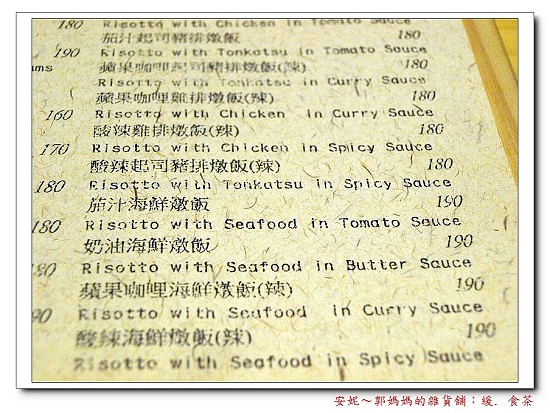 180 Risotto with Chicken in Tomato Sauce
茄汁起司豬排燉飯 180
190 Risotto with Tonkatsu in Tomato Sauce
蘋果咖哩起司豬排燉飯(辣) 180
Risotto with Tonkatsu in Curry Sauce
蘋果咖哩雞排燉飯(辣) 180
160 Risotto with Chicken in Curry Sauce
酸辣雞排燉飯(辣) 180
170 Risotto with Chicken in Spicy Sauce
酸辣起司豬排燉飯(辣) 180
180 Risotto with Tonkatsu in Spicy Sauce
茄汁海鮮燉飯 190
180 Risotto with Seafood in Tomato Sauce
奶油海鮮燉飯 190
180 Risotto with Seafood in Butter Sauce
蘋果咖哩海鮮燉飯(辣) 190
Risotto with Seafood in Curry Sauce
酸辣海鮮燉飯(辣) 190
Risotto with Seafood in Spicy Sauce
安妮～郭媽媽的雜貨舖：緩．食茶